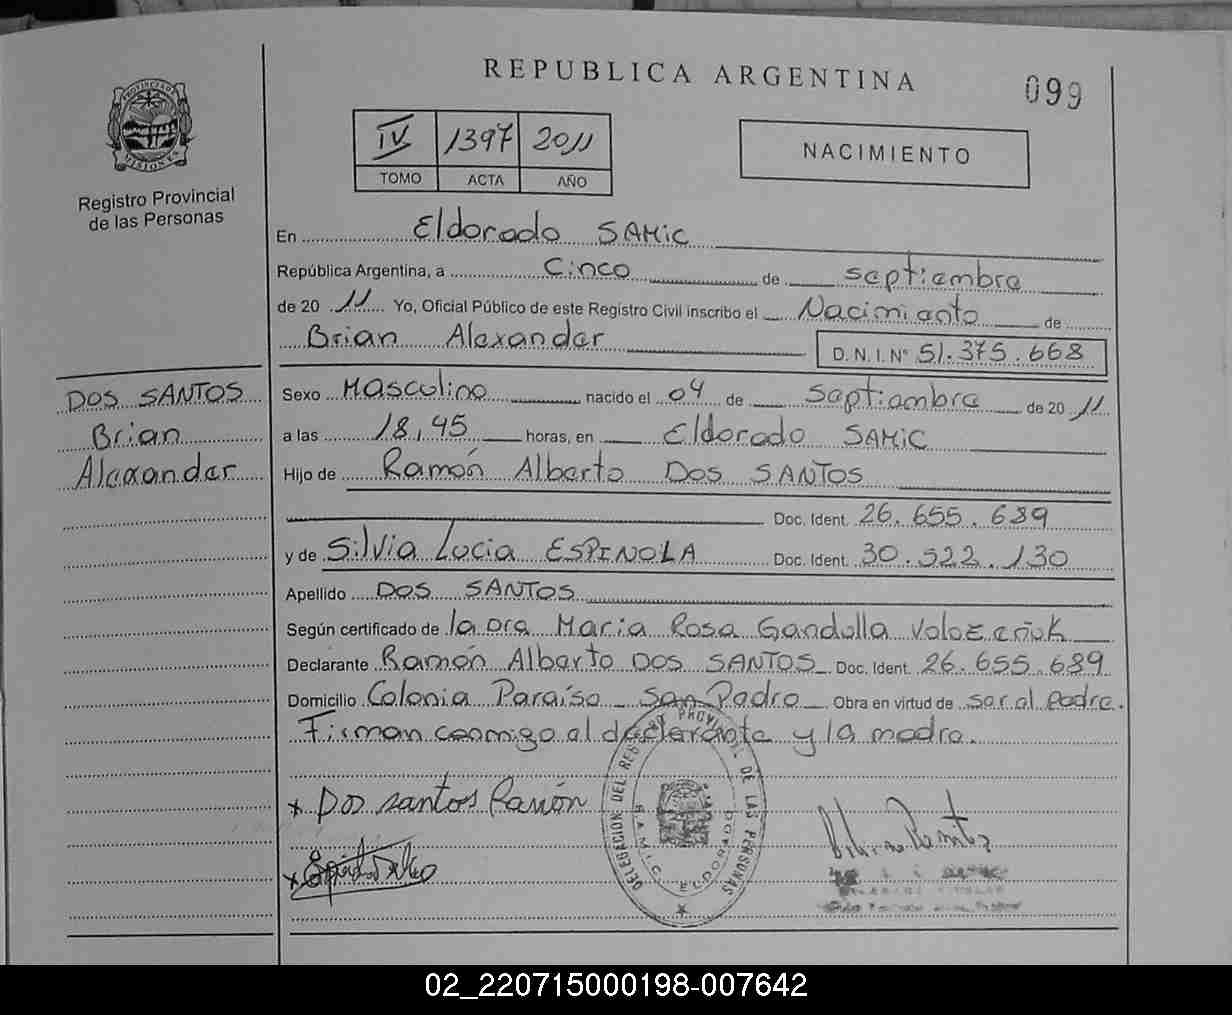 REPUBLICA ARGENTINA
099
PROVINCIA DE MISIONES
Registro Provincial
de las Personas
IV 1397 2011
TOMO ACTA AÑO
NACIMIENTO
En Eldorado SAMiC
República Argentina, a Cinco de septiembre
de 20 11 Yo, Oficial Público de este Registro Civil inscribo el Nacimiento de
Brian Alexander D.N.I.N° 51.375.668
DOS SANTOS
Brian
Alexander
Sexo Masculino nacido el 04 de septiembre de 20 11
a las 18,45 horas, en Eldorado SAMiC
Hijo de Ramón Alberto DOS SANTOS
Doc. Ident. 26.655.689
y de Silvia Lucia ESPINOLA Doc. Ident. 30.522.130
Apellido DOS SANTOS
Según certificado de la Dra Maria Rosa Gandulla
Declarante Ramón Alberto DOS SANTOS Doc. Ident. 26.655.689
Domicilio Colonia Paraíso San Pedro Obra en virtud de ser el padre.
Firman conmigo el declarante y la madre.
x Dos santos Ramón
DELEGACION DEL REGISTRO PROVINCIAL DE LAS PERSONAS
S.A.M.I.C. ELDORADO
02_220715000198-007642